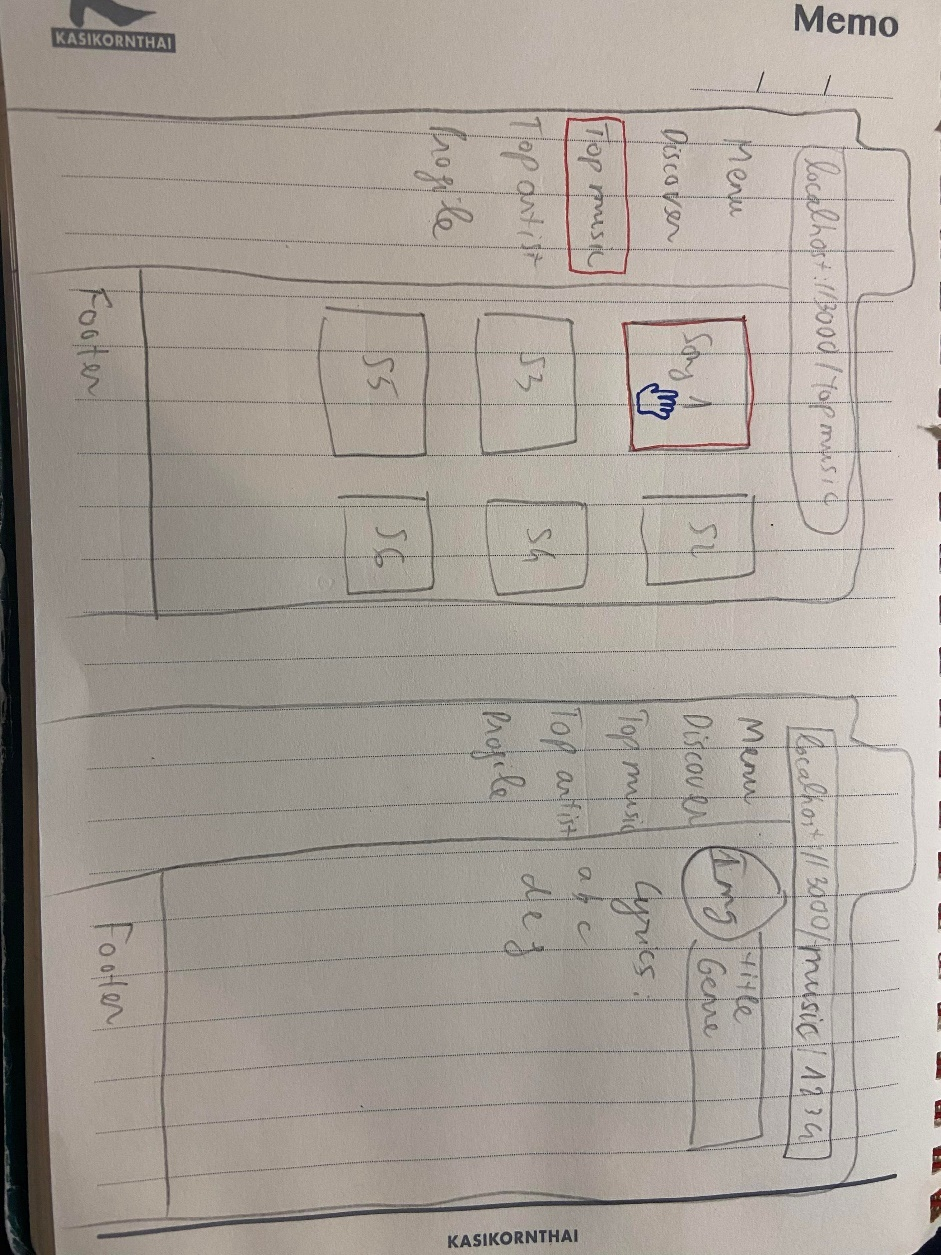 Memo
KASIKORNTHAI
localhost://3000/topmusic
Menu
Discover
Top music
Top artist
Profile
Song 1
S2
S3
S4
S5
S6
Footer
localhost://3000/music/1234
Menu
Discover
Top music
Top artist
Profile
Img
title
Genre
Lyrics:
a b c
d e f
Footer
KASIKORNTHAI